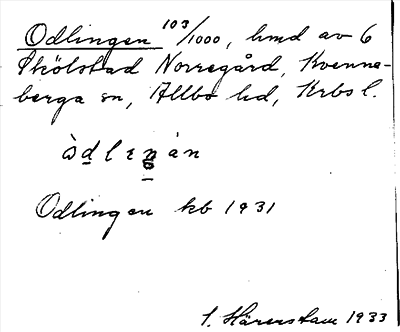 Odlingen 103/1000, hmd av 6
Skölstad Norregård, Kvenne-
berga sn, Allbo hd, Krbs l.
òdlеŋ àn
Odlingen kb 1931
S. Härenstam 1933